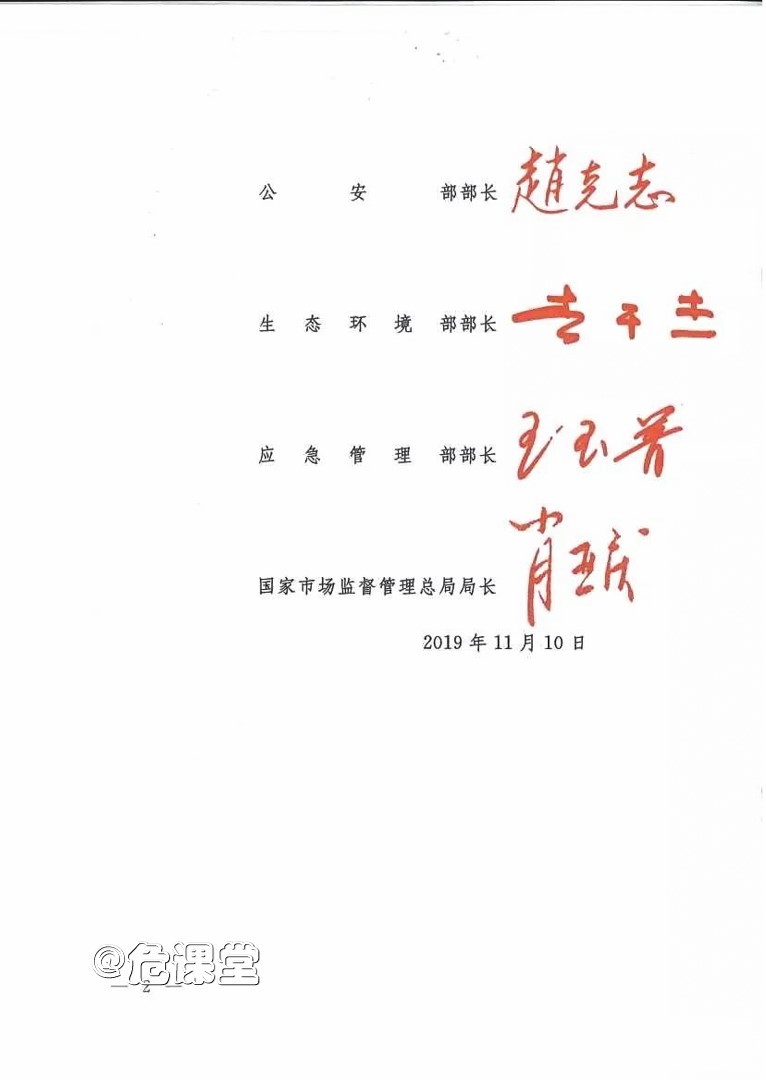 公安部部长 趙克志
生态环境部部长 李干杰
应急管理部部长 王玉普
国家市场监督管理总局局长 肖亚庆
2019年11月10日
@危课堂
— 2 —